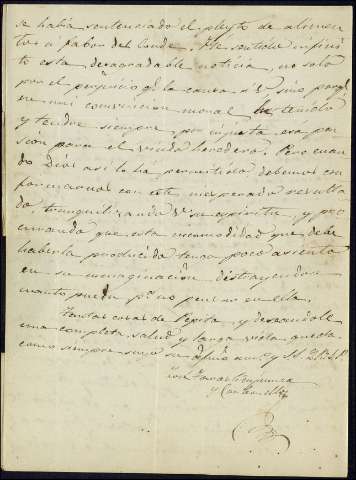 se habia sentenciado el pleyto de alimen
tos á fabor del Conde. Me sentible infini
to esta desagradable noticia, no solo
por el perjuicio q.e la causa á V. sino porq.e
en mi conviccion moral he tenido
y tendré siempre por injusta esa pen
sion para el viudo heredero. Pero cuan
do Dios asi lo ha permitido debemos con
formarnos con este inesperado resulta
do, tranquilizando V. su espiritu, y pro
curando que esta incomodidad que debe
haberla producido tenga poco asiento
en su imaginacion distrayendose
cuanto pueda p.a no pensar en ella.
Tantas cosas de Pepita, y deseandole
una completa salud y larga vida queda
como siempre suyo su af.mo am.o y S.S. Q.B.S.P.
José Tomas
y